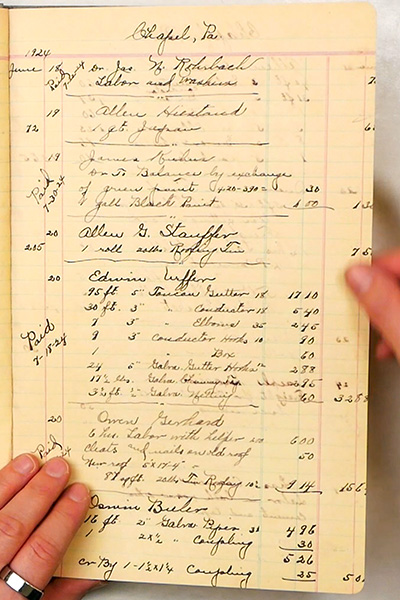 Chapel, Pa.
1924
June 18 Dr. Jas. N. Rohrbach
Paid
Labor and Washers
19 Allen Hiestand
72 1 qt. Japan
19 James Kuhns
Dr To Balance by exchange
Paid 7-30-24
of green paint 4.20-3.90= 30
Gall Black Paint 1 50
20 Allen G. Stauffer
205 1 roll 20 lbs. Roofing Tin
20 Edwin Uffer
95 ft. 5" Toncan Gutter 18 17 10
30 ft. 3" " Conductor 18 5 40
7 3" " Elbows 35 2 45
9 3" Conductor Hooks 10 90
Paid 7-15-24
1 " Box 60
24 5" Galva. Gutter Hooks 2 88
Galva.
3½ ft. Galva. 60
20 Owen Gerhard
6 hrs. Labor with helper 6 00
Paid
Cleats and nails on old roof 50
New roof 5 x 17-4"
20 lbs. Tin Roofing 10 9 14
Oswin Butler
16 ft. 2" Galva Pipe 31 4 96
1 2x½ " Coupling 30
5 26
cr By 1-1½x1¼ Coupling 25